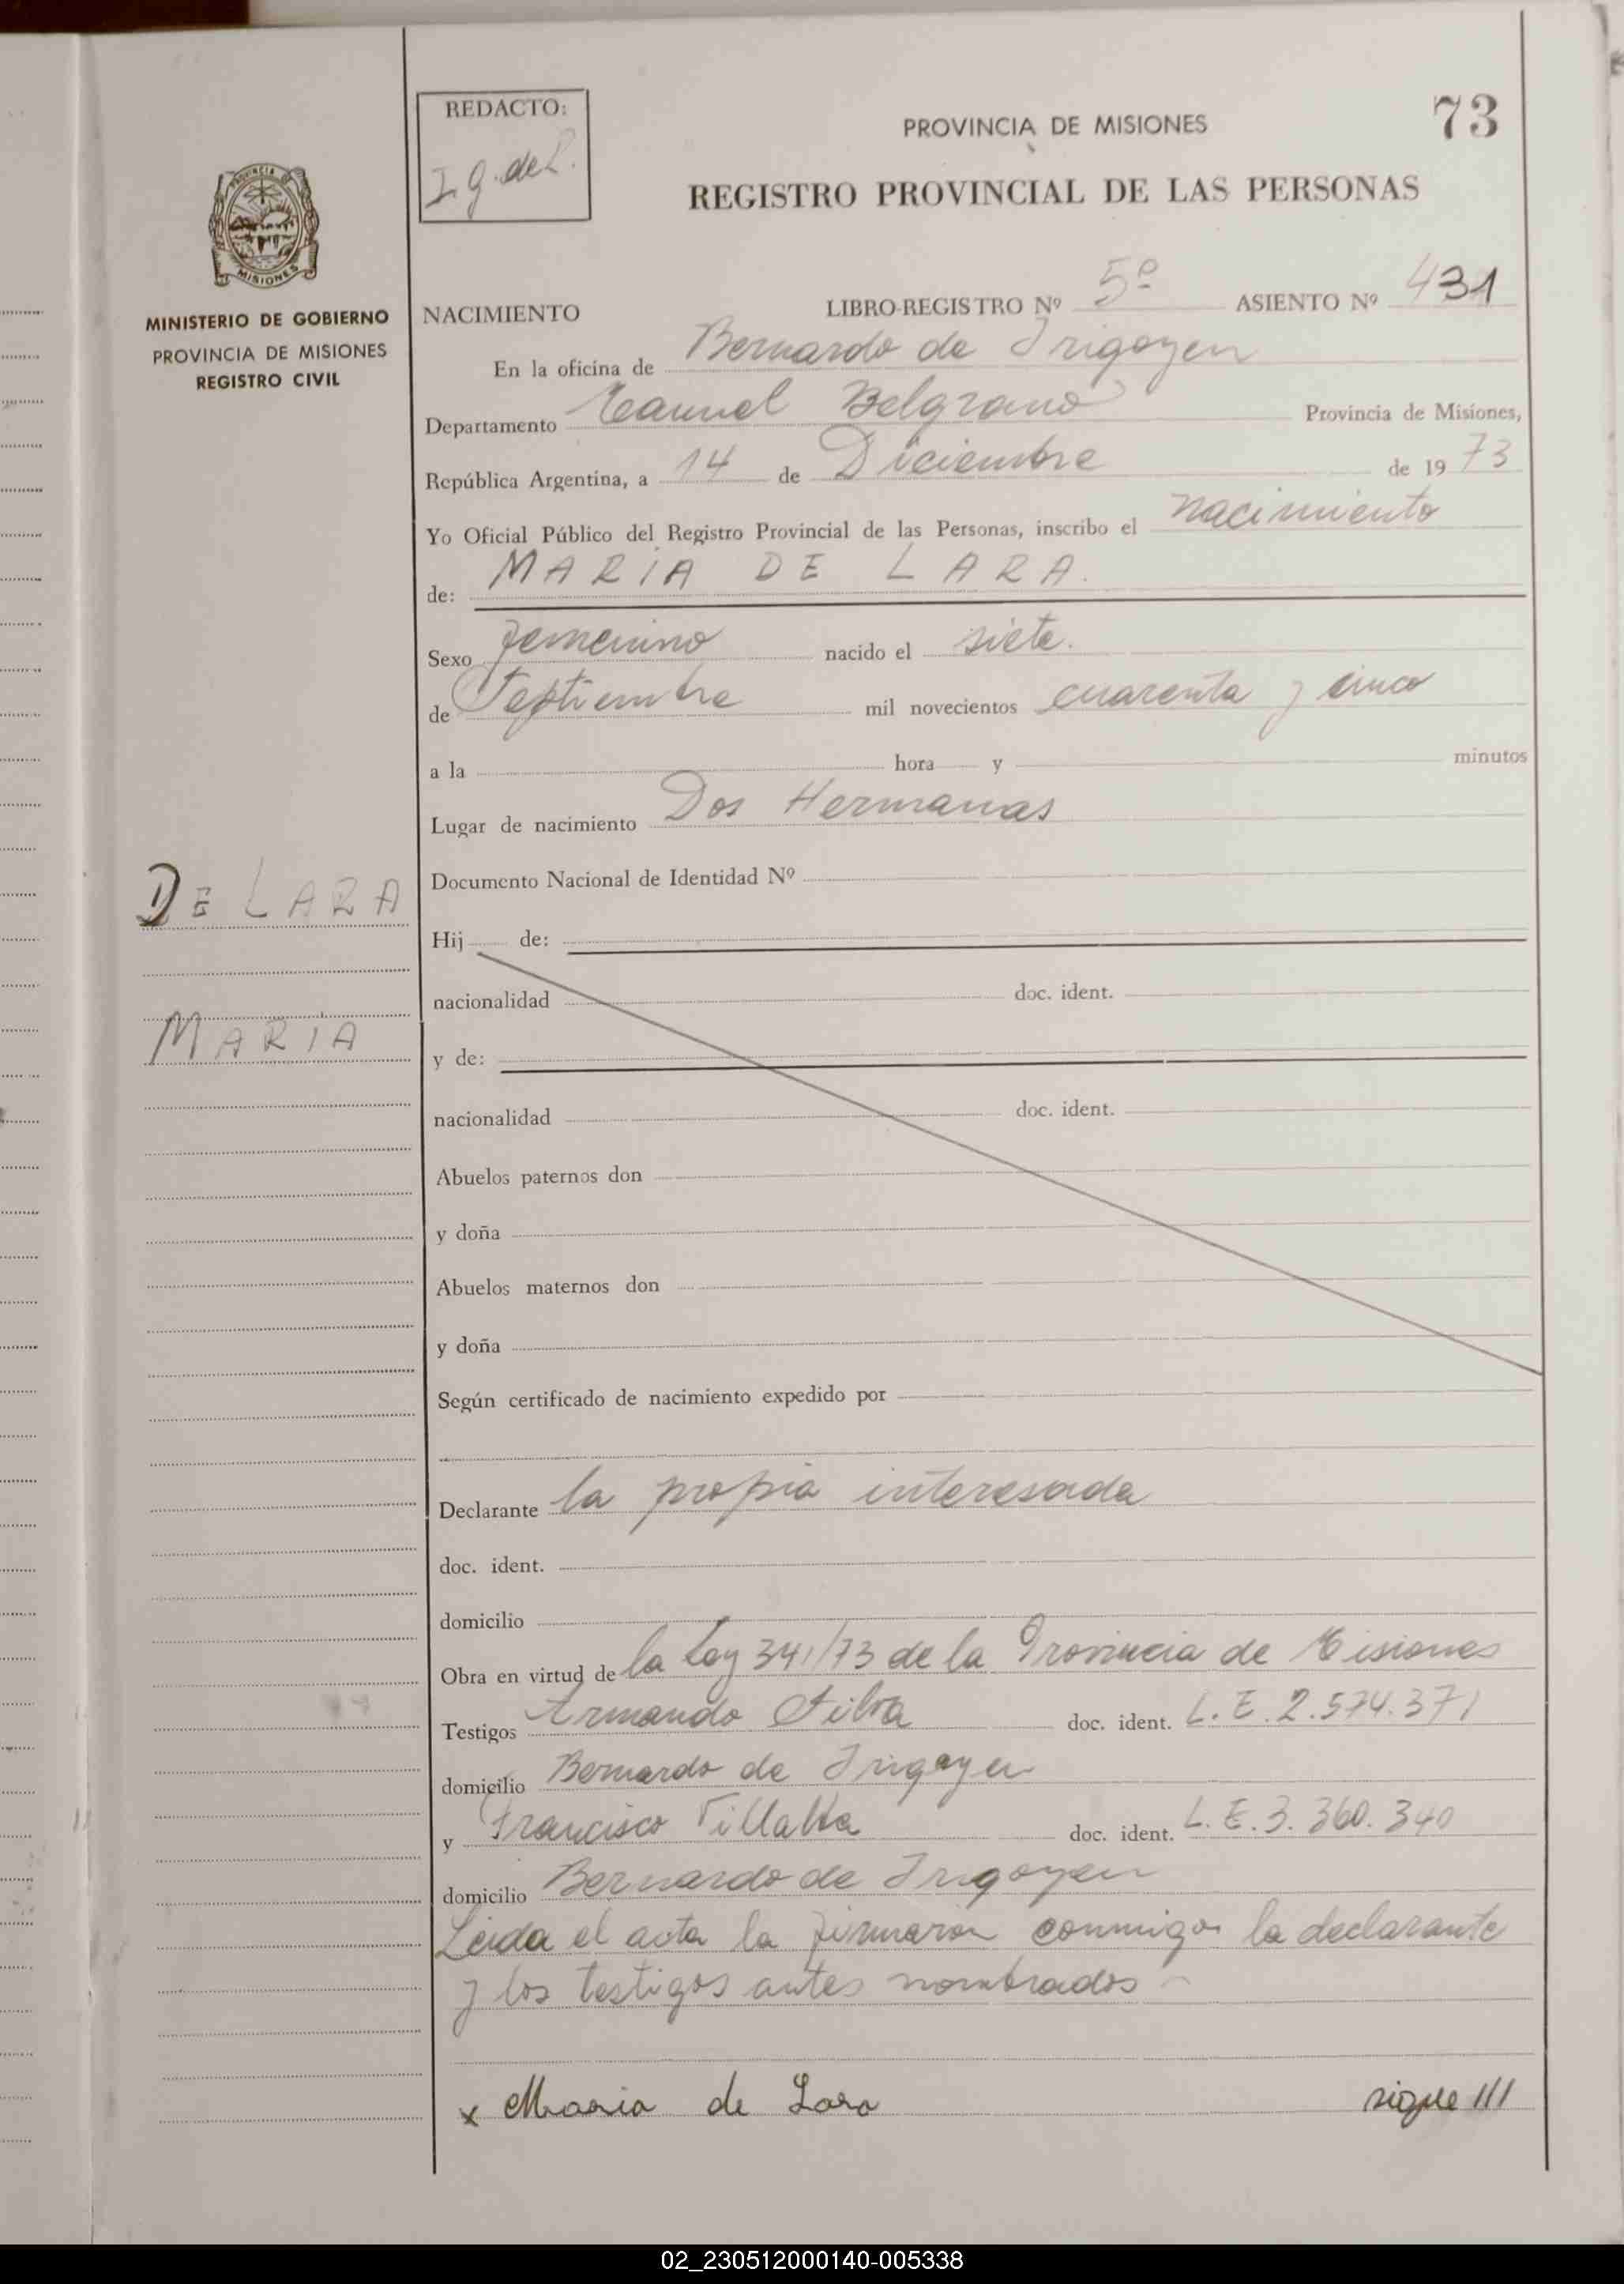 REDACTO:
I. g. de L.
PROVINCIA DE MISIONES
73
REGISTRO PROVINCIAL DE LAS PERSONAS
PROVINCIA DE
MISIONES
MINISTERIO DE GOBIERNO
PROVINCIA DE MISIONES
REGISTRO CIVIL
DE LARA
MARÍA
NACIMIENTO LIBRO-REGISTRO Nº 5º ASIENTO Nº 431
En la oficina de Bernardo de Irigoyen
Departamento Manuel Belgrano Provincia de Misiones,
República Argentina, a 14 de Diciembre de 19 73
Yo Oficial Público del Registro Provincial de las Personas, inscribo el nacimiento
de: MARÍA DE LARA.
Sexo femenino nacido el siete.
de Septiembre mil novecientos cuarenta y cinco
a la hora y minutos
Lugar de nacimiento Dos Hermanas
Documento Nacional de Identidad Nº
Hij de:
nacionalidad doc. ident.
y de:
nacionalidad doc. ident.
Abuelos paternos don
y doña
Abuelos maternos don
y doña
Según certificado de nacimiento expedido por
Declarante la propia interesada
doc. ident.
domicilio
Obra en virtud de la Ley 341/73 de la Provincia de Misiones
Testigos Armando Silva doc. ident. L.E. 2.574.371
domicilio Bernardo de Irigoyen
y Francisco Villalba doc. ident. L.E. 3.360.340
domicilio Bernardo de Irigoyen
Leida el acta la firmaron conmigo la declarante
y los testigos antes nombrados
x Maria de Lara sigue ///
02_230512000140-005338